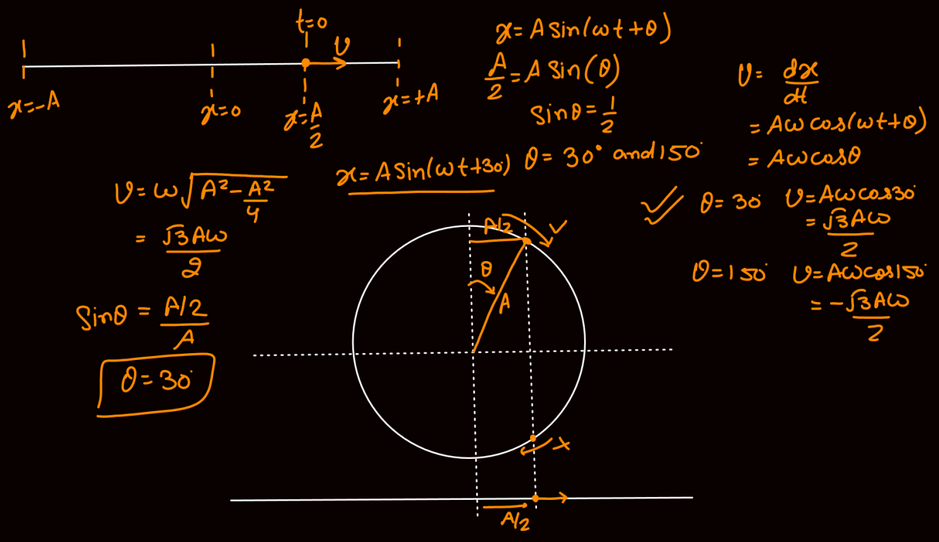 t=0
v
x=-A
x=0
x=A/2
x=+A
x=Asin(ωt+θ)
A/2=Asin(θ)
sinθ=1/2
θ=30° and 150°
x=Asin(ωt+30°)
v=dx/dt
=Aωcos(ωt+θ)
=Aωcosθ
θ=30° v=Aωcos30°
=√3Aω/2
θ=150° v=Aωcos150°
=-√3Aω/2
v=ω√(A²-A²/4)
=√3Aω/2
sinθ=A/2/A
θ=30°
A/2
θ
A
A/2